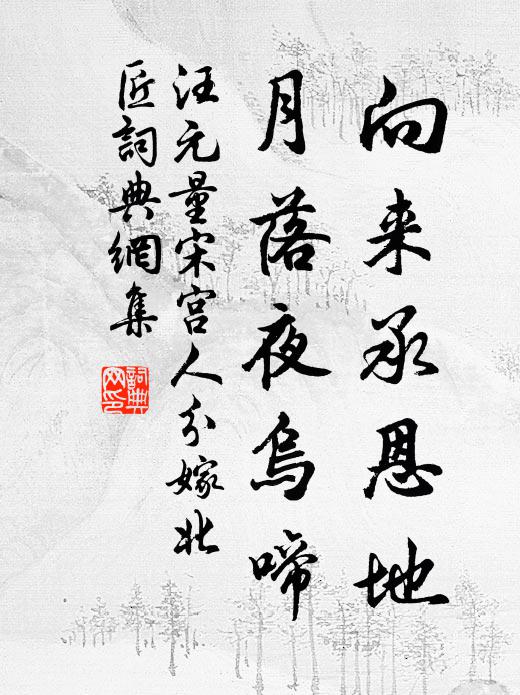 向来承恩地
月落夜烏啼
汪元量宋宫人分嫁北
匠詞典網集
詞典网印